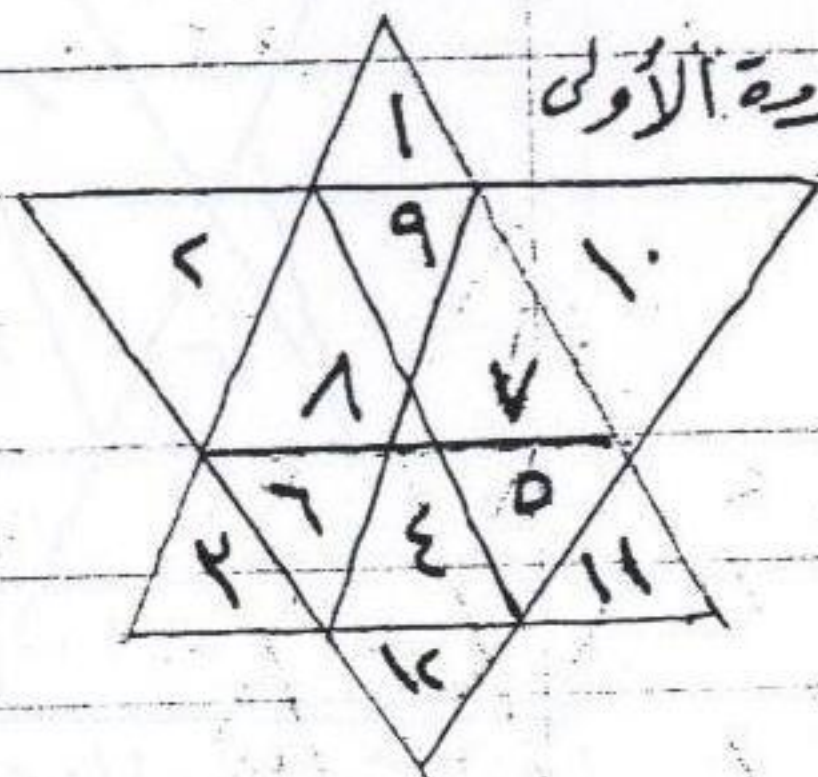 الأولى
١
٢ ٩ ١٠
٨ ٧
٣ ٦ ٤ ٥ ١١
١٢